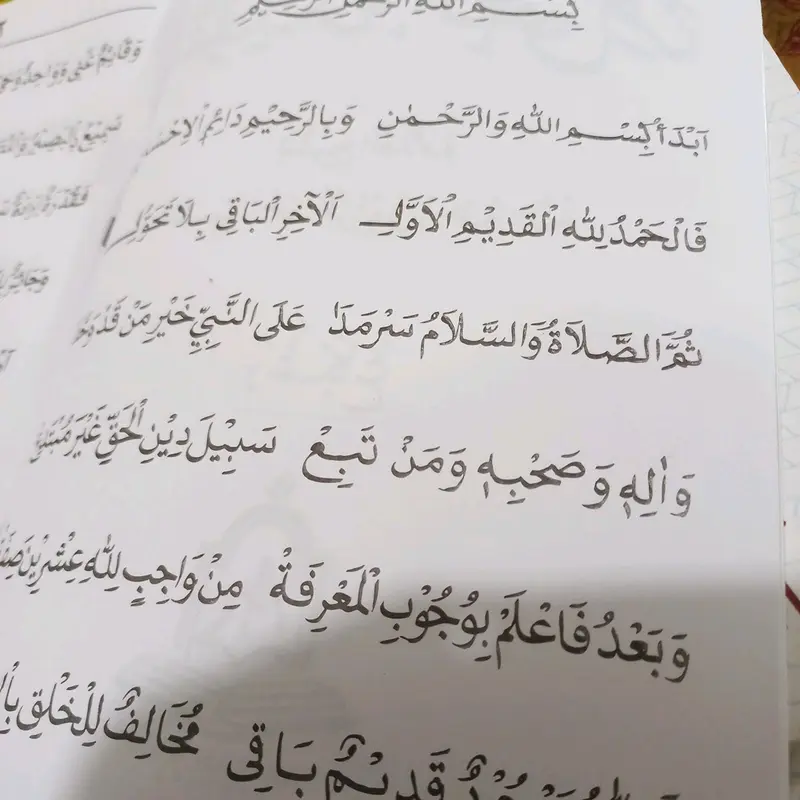 بِسْمِ اللهِ الرَّحْمٰنِ الرَّحِيْمِ
اَبْدَأُ بِسْمِ اللهِ وَالرَّحْمٰنِ وَبِالرَّحِيْمِ دَائِمِ
فَالْحَمْدُ لِلّٰهِ الْقَدِيْمِ الْاَوَّلِ اَلْآخِرِ الْبَاقِى بِلَا تَحَوُّلِ
ثُمَّ الصَّلَاةُ وَالسَّلَامُ سَرْمَدَا عَلَى النَّبِيِّ خَيْرِ مَنْ قَدْ
وَاٰلِهٖ وَصَحْبِهٖ وَمَنْ تَبِعْ سَبِيْلَ دِيْنِ الْحَقِّ غَيْرَ
وَبَعْدُ فَاعْلَمْ بِوُجُوْبِ الْمَعْرِفَةْ مِنْ وَاجِبٍ لِلّٰهِ عِشْرِيْنَ
قَدِيْمٌ بَاقِى مُخَالِفٌ لِلْخَلْقِ
وَقَائِمٌ غَنِى وَوَاحِدٌ
سَمِيْعٌ